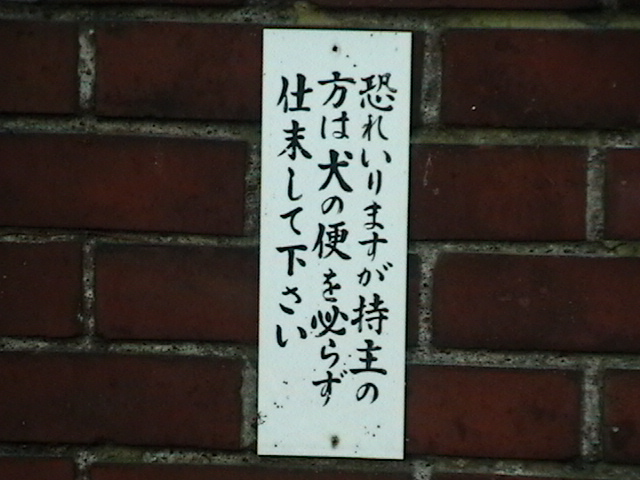 恐れいりますが持主の
方は犬の便を必らず
仕末して下さい